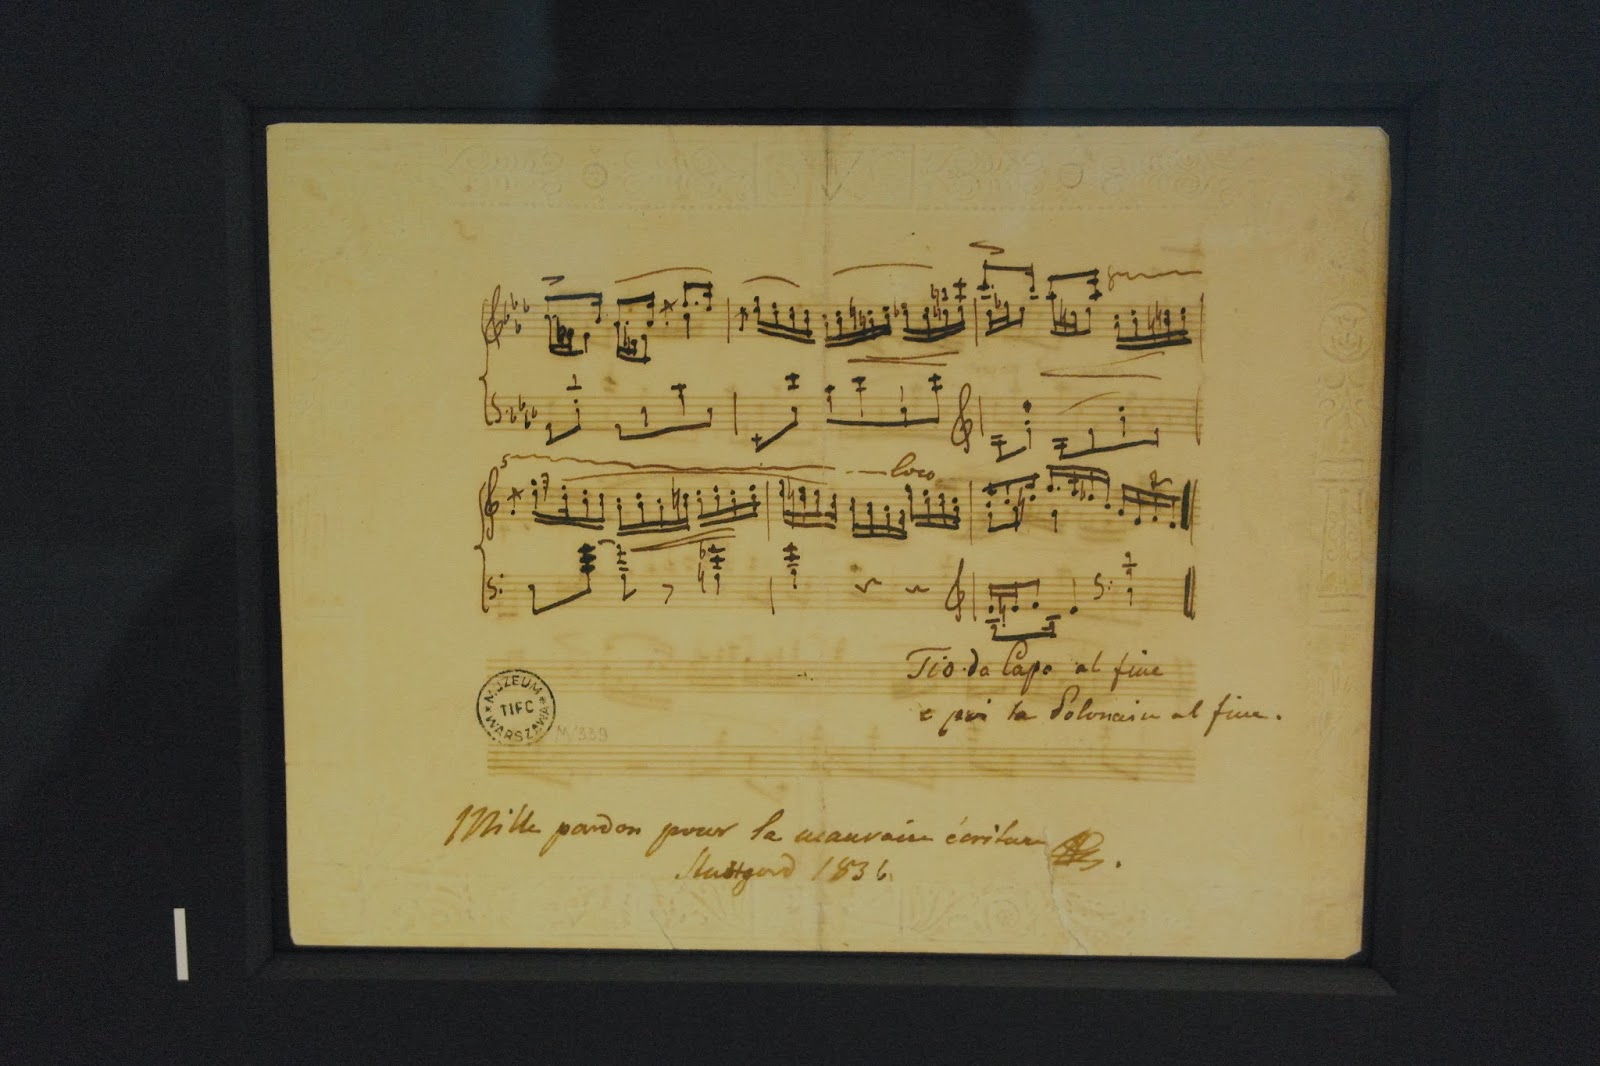 loco
Trio da Capo al fine
e poi la Polonaise al fine.
MUZEUM TIFC WARSZAWA
M/339
Mille pardon pour la mauvaise écriture
Stuttgard 1836